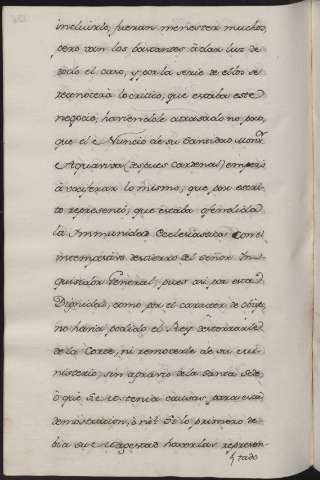 incluirlo, fueran menester muchos,
pero son los bastantes â dar luz de
todo el caso, y por la serie de ellos se
reconocerà lo critico, que estaba este
negocio, haviendole atrasado no poco,
que el Nuncio de su Santidad Monr.
Aquaviva (despues Cardenal) empezó
à vociferar lo mismo, que por escri-
to representò, que estaba ofendida
la Immunidad Ecclesiastica con el
intempestivo destierro del señor In-
quisidor General, pues asi por esta
Dignidad, como por el caracter de Obispo
no havia podido el Rey desterrarle
de la Corte, ni removerle de su mi-
nisterio, sin agravio de la Santa Sede
ò que Se. Us. tenia causas, para esta
demostracion, ò no: Si lo primero de-
bia su Magestad haverlas represen-
tado